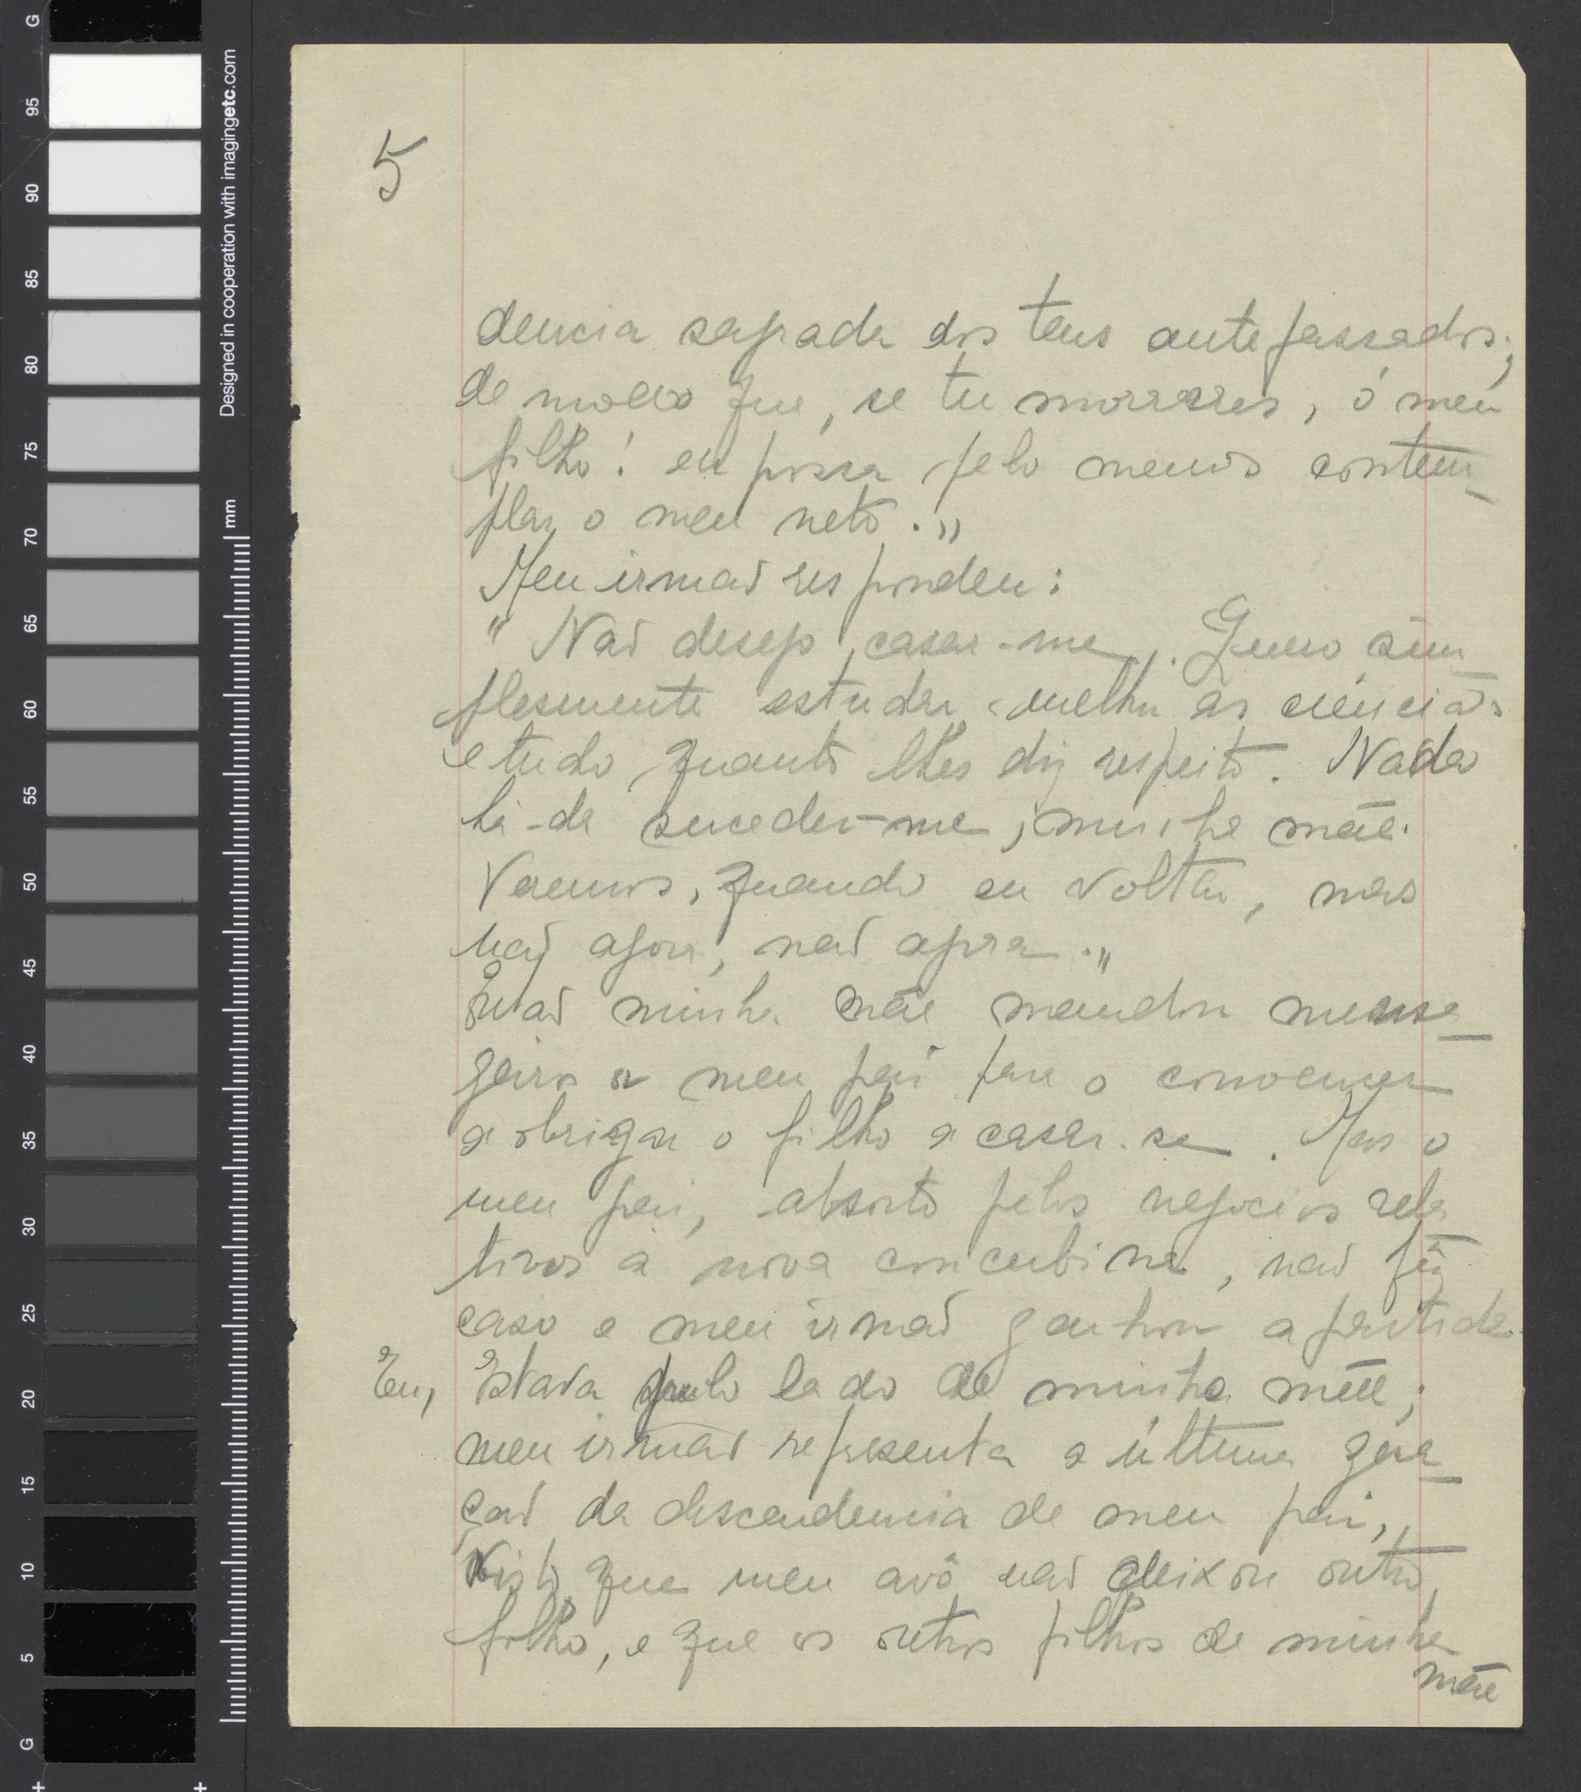 5
dencia sagrada dos teus antepassados;
de modo que, se tu morreres, ó meu
filho! eu possa pelo menos contem-
plar o meu neto."
Meu irmaõ respondeu:
"Naõ desejo casar-me. Quero sim-
plesmente estudar melhor as ciências
e tudo quanto lhes diz respeito. Nada
há-de suceder-me, minha mãe.
Veremos, quando eu voltar, mas
naõ agora, naõ agora."
Entaõ minha mãe mandou mensa-
geiros a meu pai para o convencer
a obrigar o filho a casar-se. Mas o
meu pai, absorto pelos negocios rela-
tivos á nova concubina, naõ fêz
caso e meu irmaõ ganhou a partida.
Eu, estava pelo lado de minha mãe;
meu irmaõ representa a última gera-
çaõ da descendencia de meu pai,
visto que meu avô naõ deixou outro
filho, e que os outros filhos de minha
mãe
Designed in cooperation with imagingetc.com
mm
G
95
90
85
80
75
70
65
60
55
50
45
40
35
30
25
20
15
10
5
G